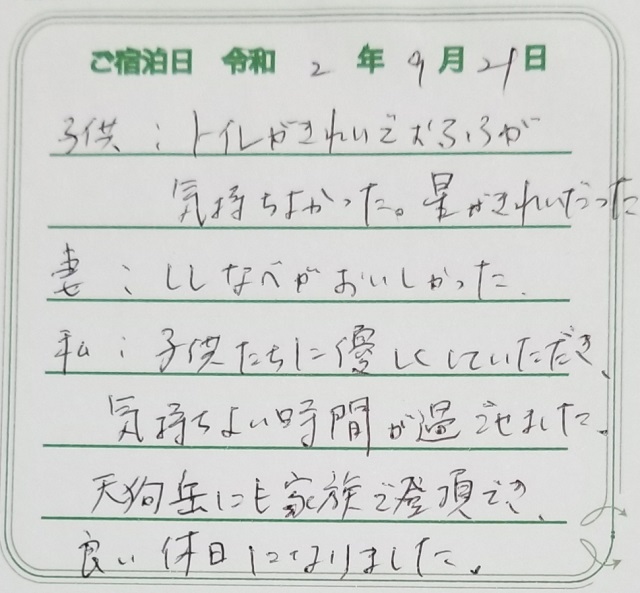 ご宿泊日 令和 2 年 9 月 21 日
子供：トイレがきれいでおふろが
気持ちよかった。星がきれいだった
妻：ししなべがおいしかった。
私：子供たちに優しくしていただき、
気持ちよい時間が過ごせました。
天狗岳にも家族で登頂でき、
良い休日になりました。